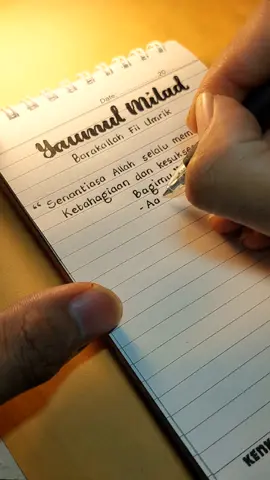 Date
20
Yaumul Milad
Barakallah Fii Umrik
“ Senantiasa Allah selalu mem
Kebahagiaan dan kesukse
Bagimu "
- Aa
KENK